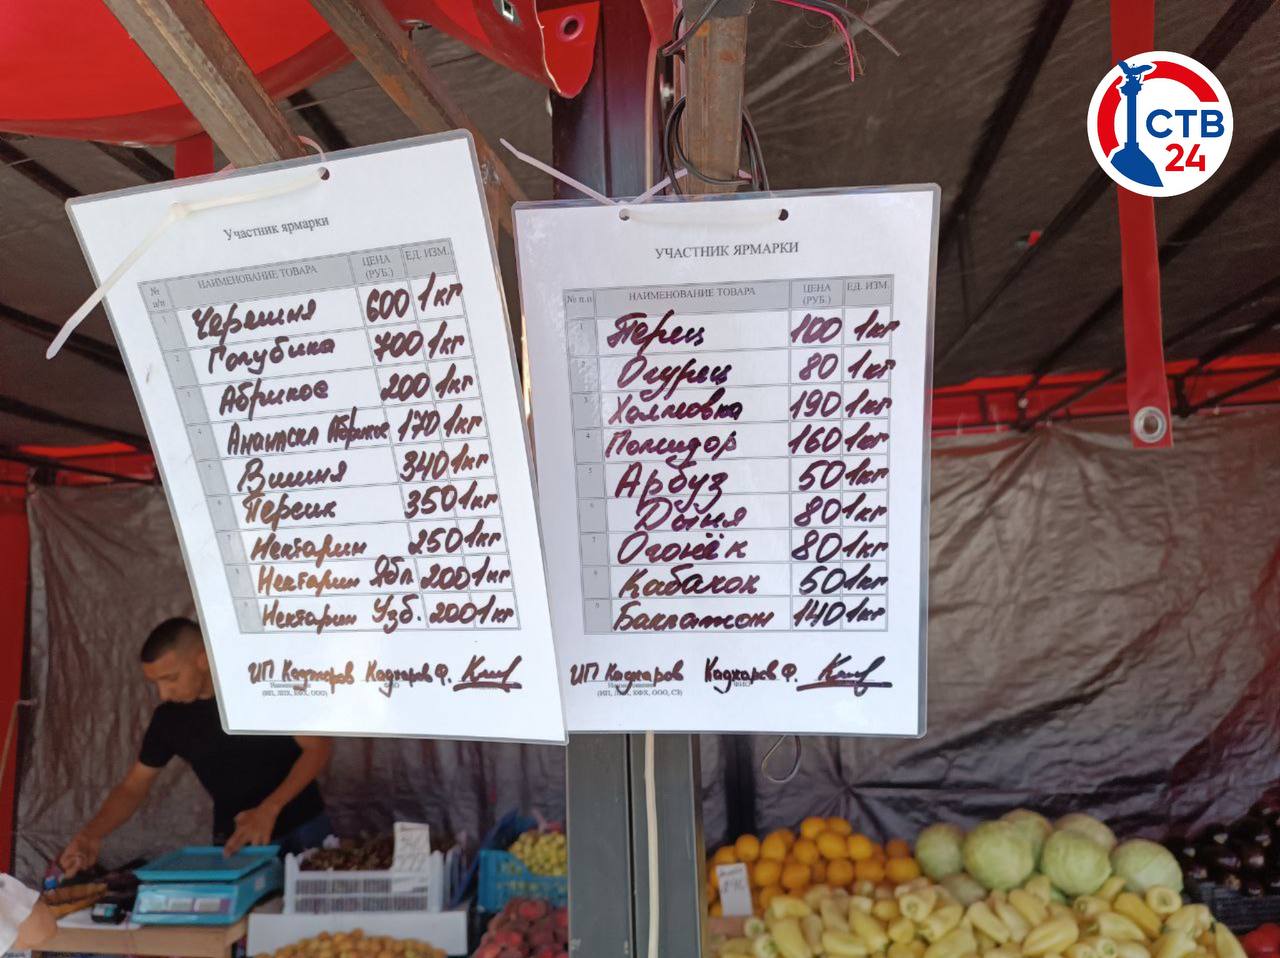 СТВ
24
Участник ярмарки
№ п/п НАИМЕНОВАНИЕ ТОВАРА ЦЕНА (РУБ.) ЕД. ИЗМ.
1 Черешня 600 1кг
2 Голубика 700 1кг
3 Абрикос 200 1кг
4 Ананаскл Абрикос 170 1кг
5 Вишня 340 1кг
6 Персик 350 1кг
7 Нектарин 250 1кг
8 Нектарин Ябл 200 1кг
9 Нектарин Узб. 200 1кг
ИП Каджаров Каджаров Ф.
Наименование ФИО
(ИП, ЛПХ, КФХ, ООО)
УЧАСТНИК ЯРМАРКИ
№ п.п НАИМЕНОВАНИЕ ТОВАРА ЦЕНА (РУБ.) ЕД. ИЗМ
1 Перец 100 1кг
2 Огурец 80 1кг
3 Халмовка 190 1кг
4 Помидор 160 1кг
5 Арбуз 50 1кг
6 Дыня 80 1кг
7 Огонёк 80 1кг
8 Кабачок 50 1кг
9 Баклажан 140 1кг
ИП Каджаров Каджаров Ф.
Наименование ФИО
(ИП, ЛПХ, КФХ, ООО, СЗ)